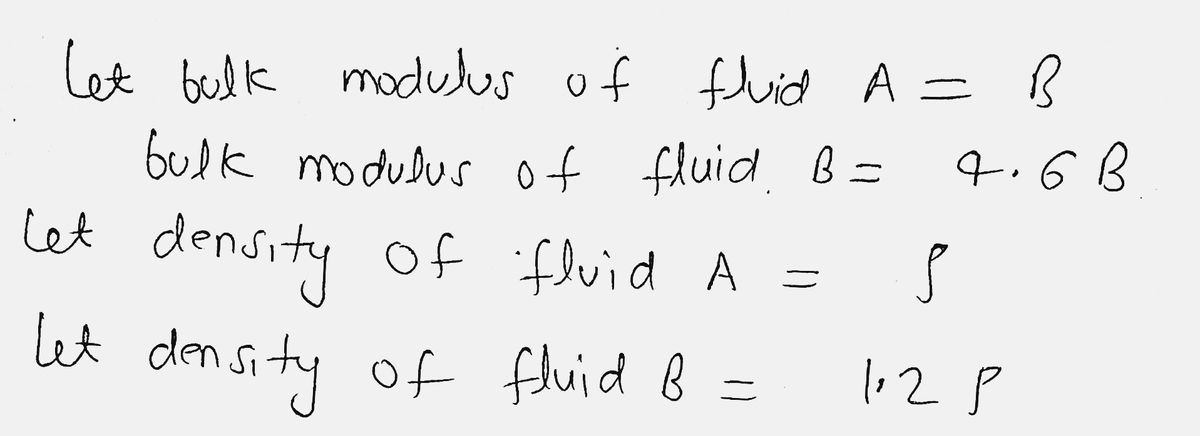 Let bulk modulus of fluid A = B
bulk modulus of fluid B = 4.6 B
Let density of fluid A = ρ
Let density of fluid B = 1.2 ρ